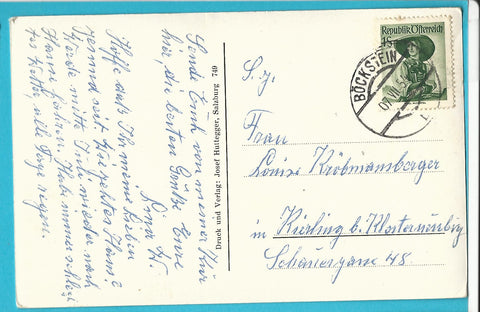 Sende Euch von meiner Kur
hier, die besten Grüße Eure
Hoffe daß Ihr meine Lieben
gesund seit. Wie geht es Hans?
Werde mitte Juli wieder nach
Hause fahren. Habe immer schlech
tes Wetter, alle Tage regen.
Druck und Verlag: Josef Huttegger, Salzburg 749
Republik Österreich
BÖCKSTEIN
S. g.
Frau
Louise Krobmansberger
in Kierling bei Klosterneuburg
Schauergasse 48.